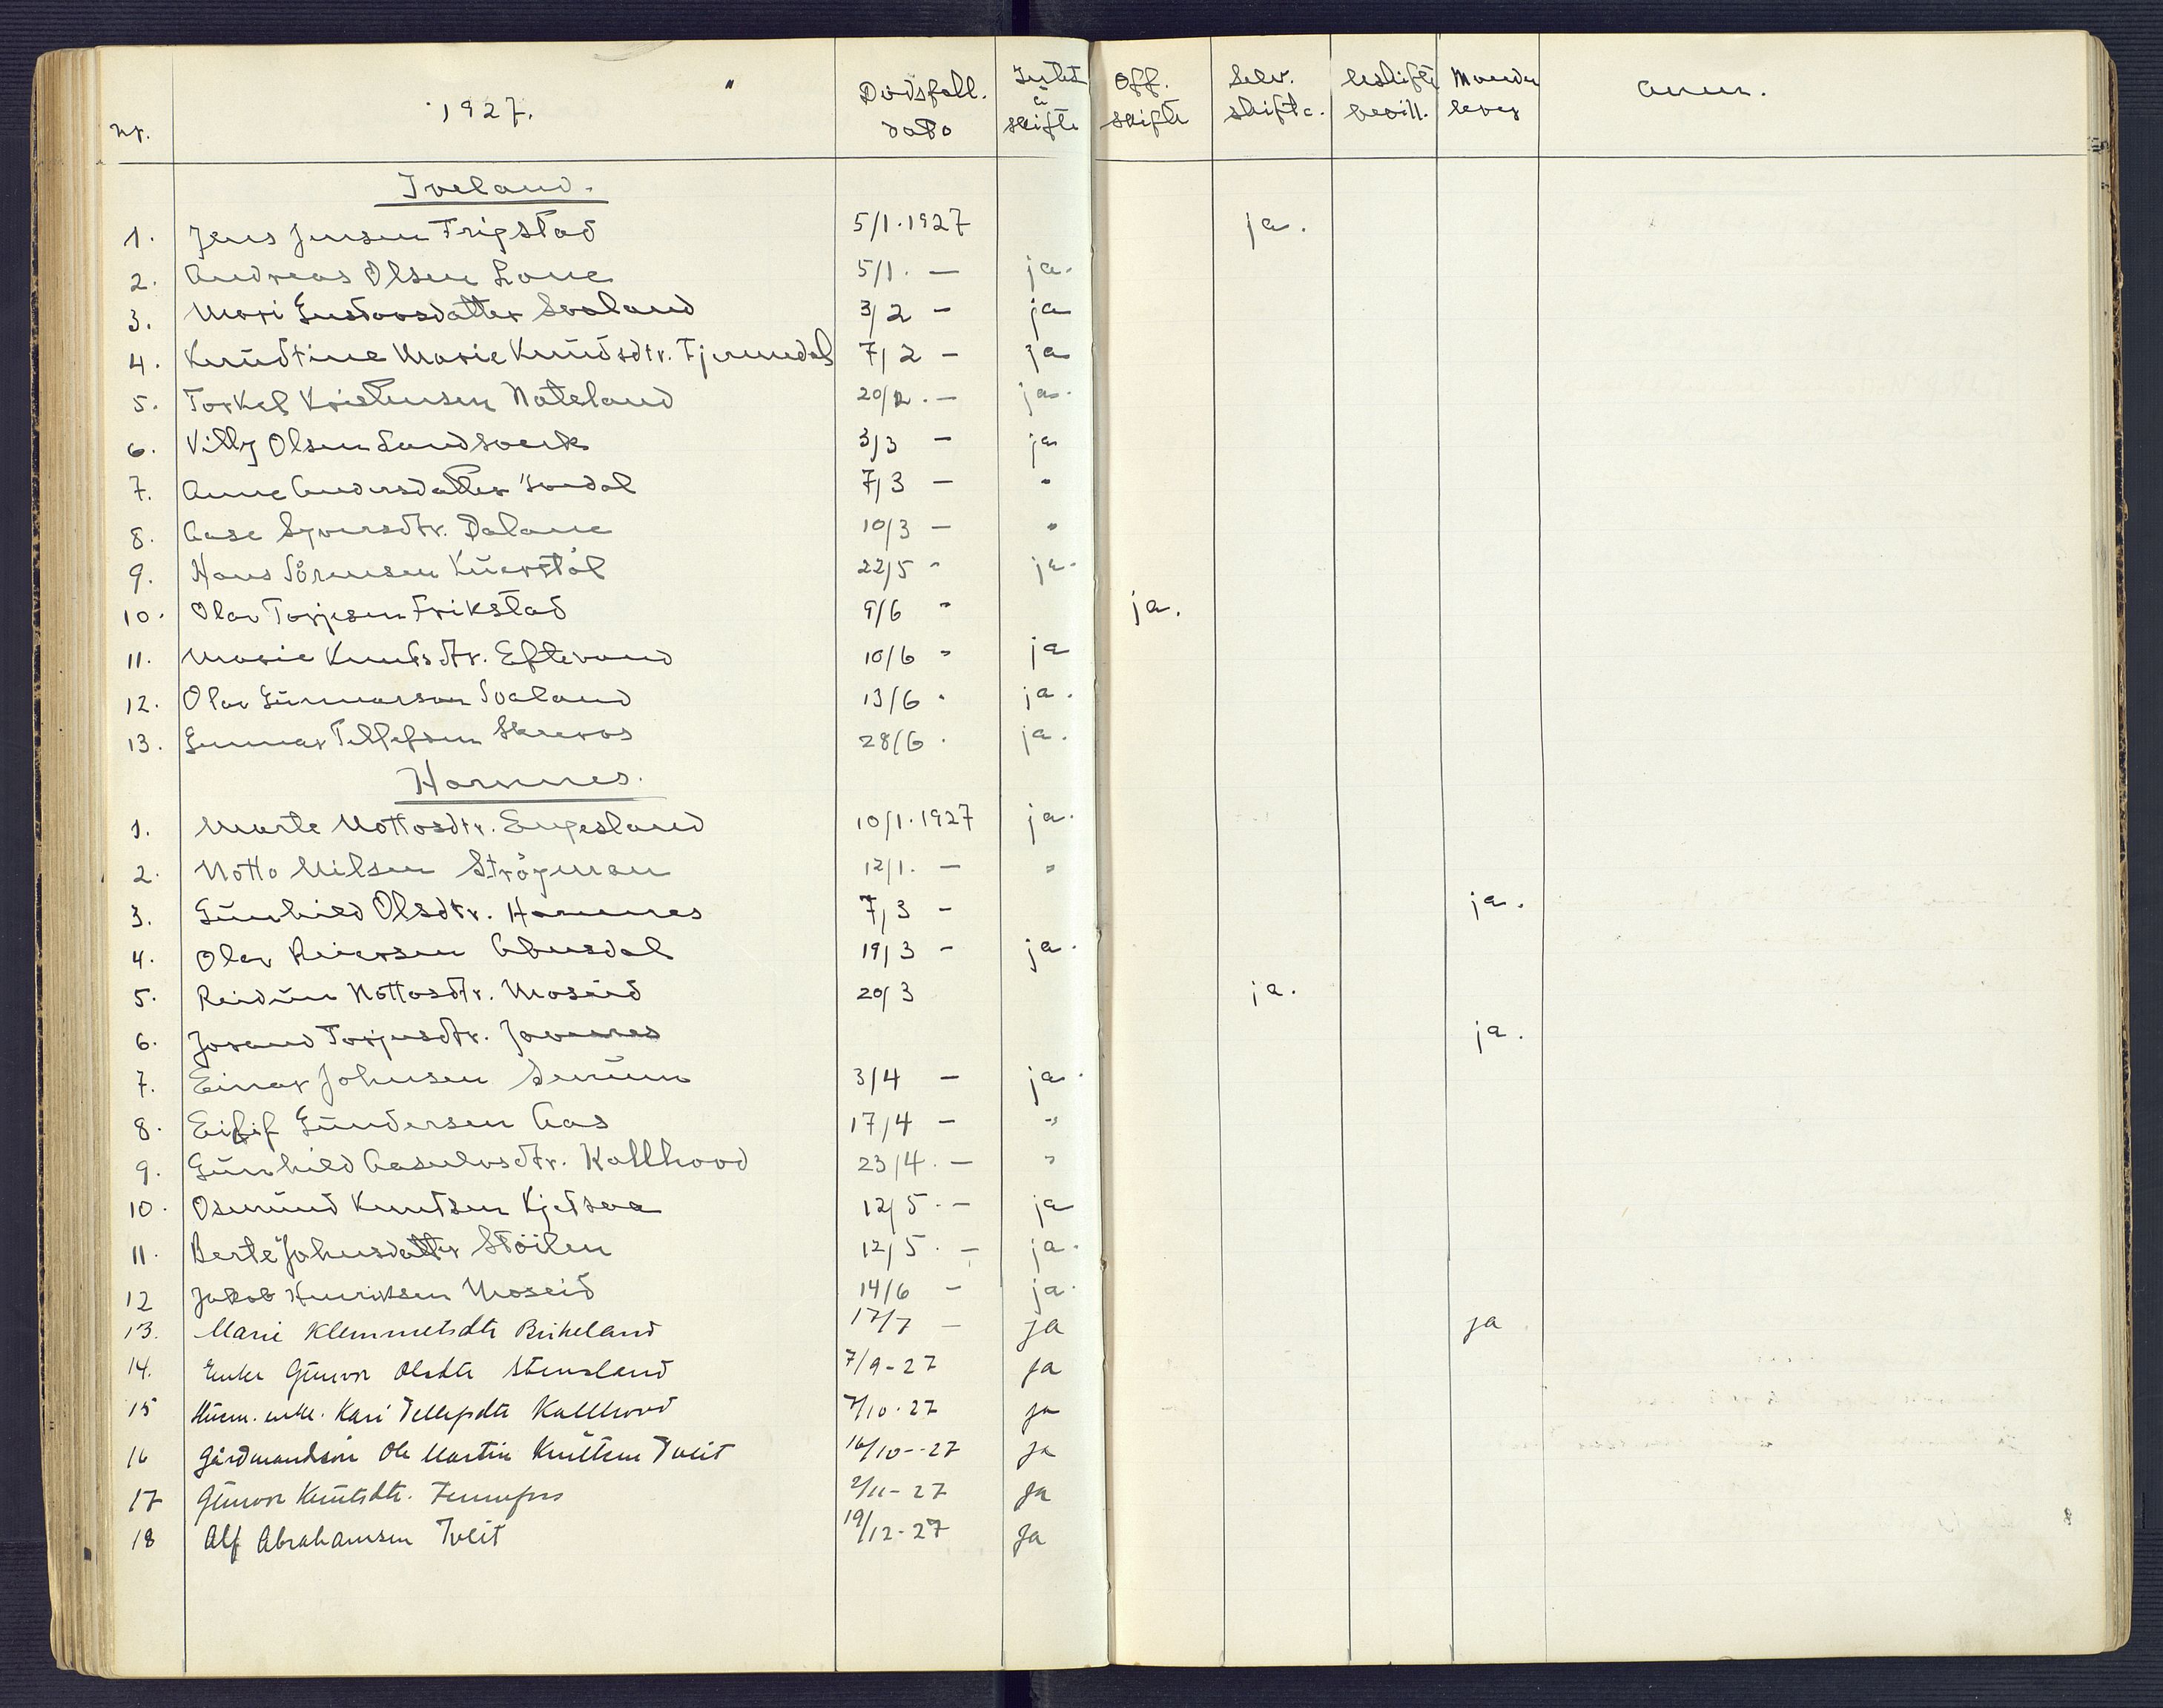 nr. 1927. " Dødsfall. dato Intet å skifte Off. skifte Selv. skifte. Uskifte bevill. Manden lever Anm.
Iveland.
1. Jens Jensen Frigstad 5/1. 1927 ja.
2. Andreas Olsen Lone 5/1. — ja.
3. Mari Gustavsdatter Svaland 3/2 — ja
4. Knudtine Marie Knudsdtr. Tjermedal 7/2 — ja
5. Torkel Kristensen Nateland 20/2. — ja.
6. Villy Olsen Landsverk 3/3 — ja
7. Anne Andersdatter 7/3 — "
8. Aase Syversdtr. Dalane 10/3 — "
9. Hans Sörensen 22/5 " ja.
10. Olav Torjesen Frikstad 9/6 " ja.
11. Marie Knutsdtr. Eftevand 10/6 " ja
12. Olav Günnarson Svaland 13/6 " ja.
13. Gunnar Tellefsen Skreros 28/6 . ja.
Hornnes.
1. Marte Nottosdtr. Engesland 10/1. 1927 ja.
2. Notto Nilsen Strögman 12/1. — "
3. Günhild Olsdtr. Hornnes 7/3 — ja.
4. Olav Reiersen Abusdal 19/3 — ja.
5. Reidün Nottosdtr. Moseid 20/3 ja.
6. Jorand Torjusdtr. ja.
7. Einar Johnsen Senüm 3/4 — ja.
8. Eilif Gündersen Aas 17/4 — "
9. Günhild Aasulvsdtr. Kallhovd 23/4. — "
10. Osmünd Knutsen Kjetsaa 12/5. — ja
11. Berte Johnsdatter Stöilen 12/5. — ja.
12 Jakob Henriksen Moseid 14/6 — ja.
13. Marie Klemmetsdtr Birkeland 17/7 — ja ja
14. Enke Günvor Olsdtr Stensland 7/9-27 ja
15 Husm. enke. Kari Tellefsdtr Kallhovd 7/10-27 ja
16 Gårdmandsön Ole Martin Knütsen Tveit 16/10-27 ja
17 Günvor Knütsdtr. Fennefoss 2/11-27 ja
18 Alf Abrahamsen Tveit 19/12-27 ja